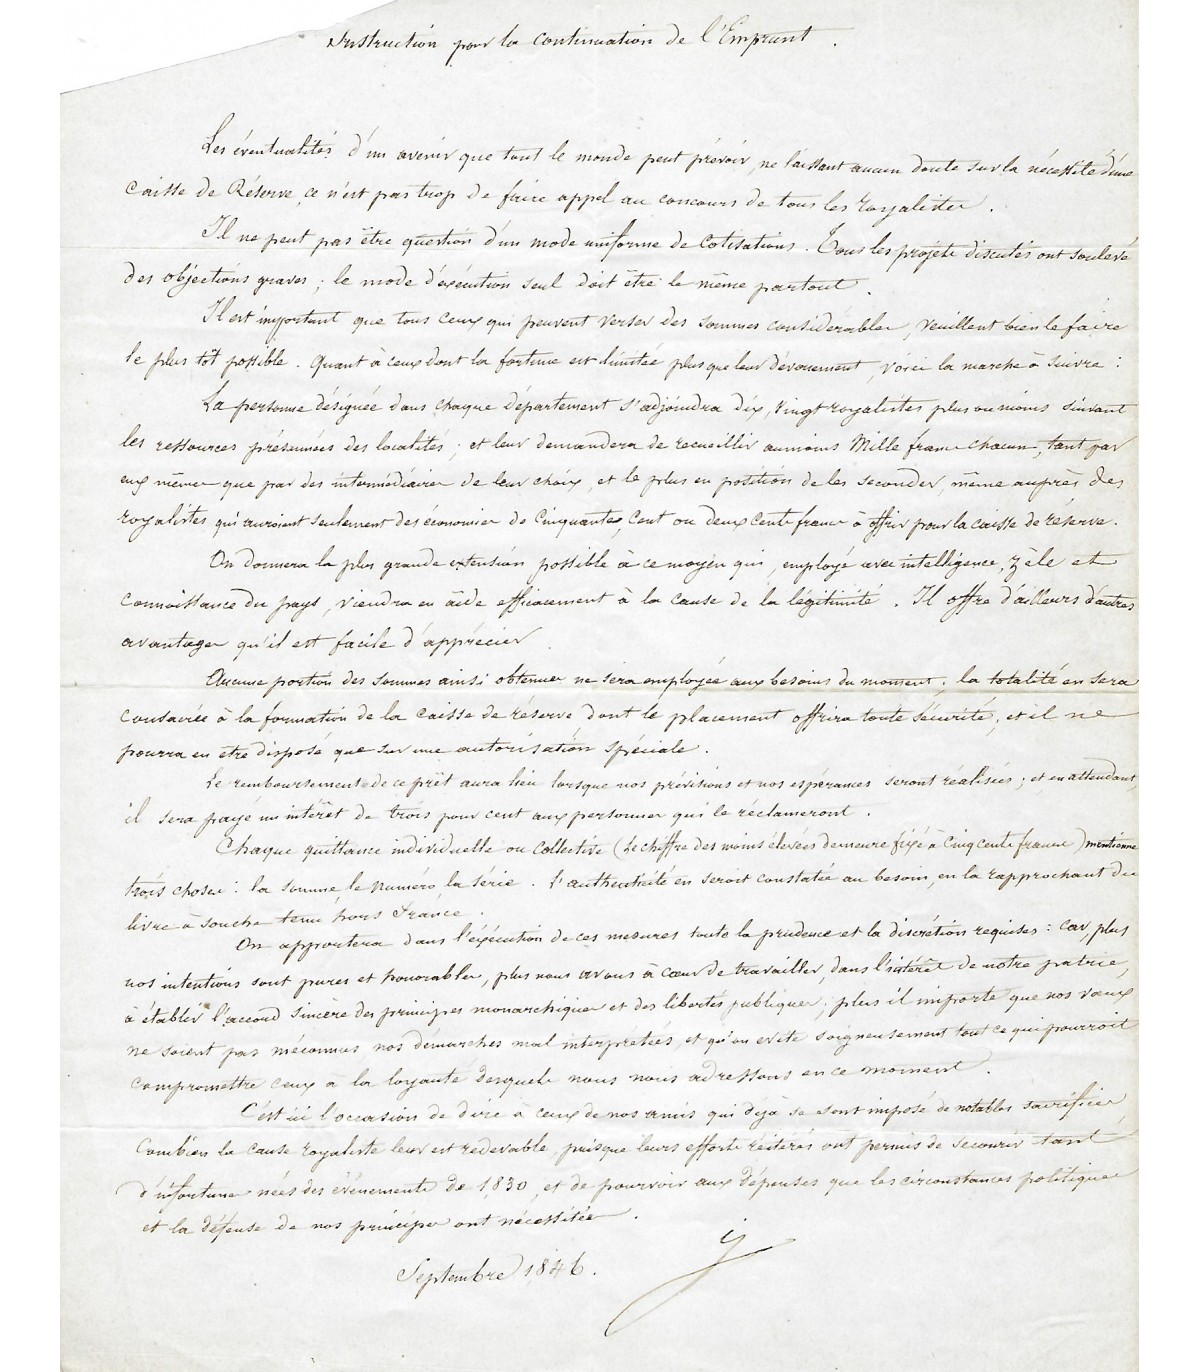 Instruction pour la continuation de l'Emprunt.
Les éventualités d'un avenir que tout le monde peut prévoir, ne laissant aucun doute sur la nécessité d'une
Caisse de Réserve, ce n'est pas trop de faire appel au concours de tous les royalistes.
Il ne peut pas être question d'un mode uniforme de Cotisations. Tous les projets discutés ont soulevé
des objections graves; le mode d'exécution seul doit être le même partout.
Il est important que tous ceux qui peuvent verser des sommes considérables, veuillent bien le faire
le plus tôt possible. Quant à ceux dont la fortune est limitée plus que leur dévouement, voici la marche à suivre:
La personne désignée dans chaque département s'adjoindra dix, vingt royalistes plus ou moins suivant
les ressources présumées des localités; et leur demandera de recueillir au moins Mille francs chacun, tant par
eux mêmes que par des intermédiaires de leur choix, et le plus en position de les seconder, même auprès des
royalistes qui auroient seulement des économies de Cinquante, Cent ou deux Cents francs à offrir pour la caisse de réserve.
On donnera la plus grande extension possible à ce moyen qui, employé avec intelligence, zèle et
connoissance du pays, viendra en aide efficacement à la cause de la légitimité. Il offre d'ailleurs d'autres
avantages qu'il est facile d'apprécier
Aucune portion des sommes ainsi obtenues ne sera employée aux besoins du moment; la totalité en sera
consacrée à la formation de la caisse de réserve dont le placement offrira toute sécurité; et il ne
pourra en être disposé que sur une autorisation spéciale.
Le remboursement de ce prêt aura lieu lorsque nos prévisions et nos espérances seront réalisées; et en attendant,
il sera payé un intérêt de trois pour cent aux personnes qui le réclameront.
Chaque quittance individuelle ou collective (le chiffre des moins élevées demeure fixé à Cinq Cents francs) mentionne
trois choses: la somme, le numéro, la série. L'authenticité en seroit constatée au besoin, en la rapprochant du
livre à souche tenu hors France.
On apportera dans l'exécution de ces mesures toute la prudence et la discrétion requises: car, plus
nos intentions sont pures et honorables, plus nous avons à cœur de travailler, dans l'intérêt de notre patrie,
à établir l'accord sincère des principes monarchiques et des libertés publiques; plus il importe que nos vœux
ne soient pas méconnus nos démarches mal interprétées, et qu'on evite soigneusement tout ce qui pourroit
compromettre ceux à la loyauté desquels nous nous adressons en ce moment.
C'est ici l'occasion de dire à ceux de nos amis qui déjà se sont imposé de notables sacrifices
Combien la cause royaliste leur est redevable puisque leurs efforts réitérés ont permis de secourir tant
d'infortunes nées des évènements de 1830, et de pourvoir aux dépenses que les circonstances politiques
et la défense de nos principes ont nécessitées.
Septembre 1846.